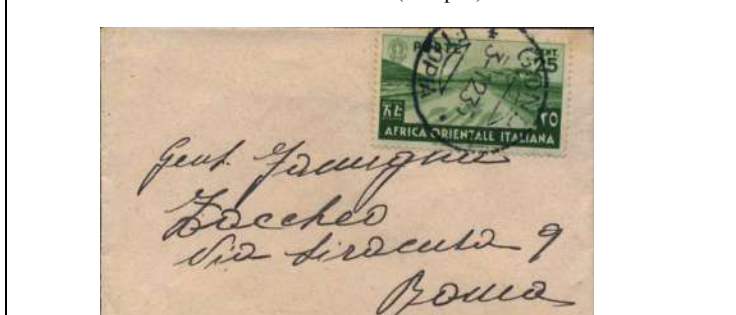 POSTE
CENT.
25
ETIOPIA
23
٢٥
AFRICA ORIENTALE ITALIANA
Gent. Famiglia
Zaccheo
Via Siracusa 9
Roma